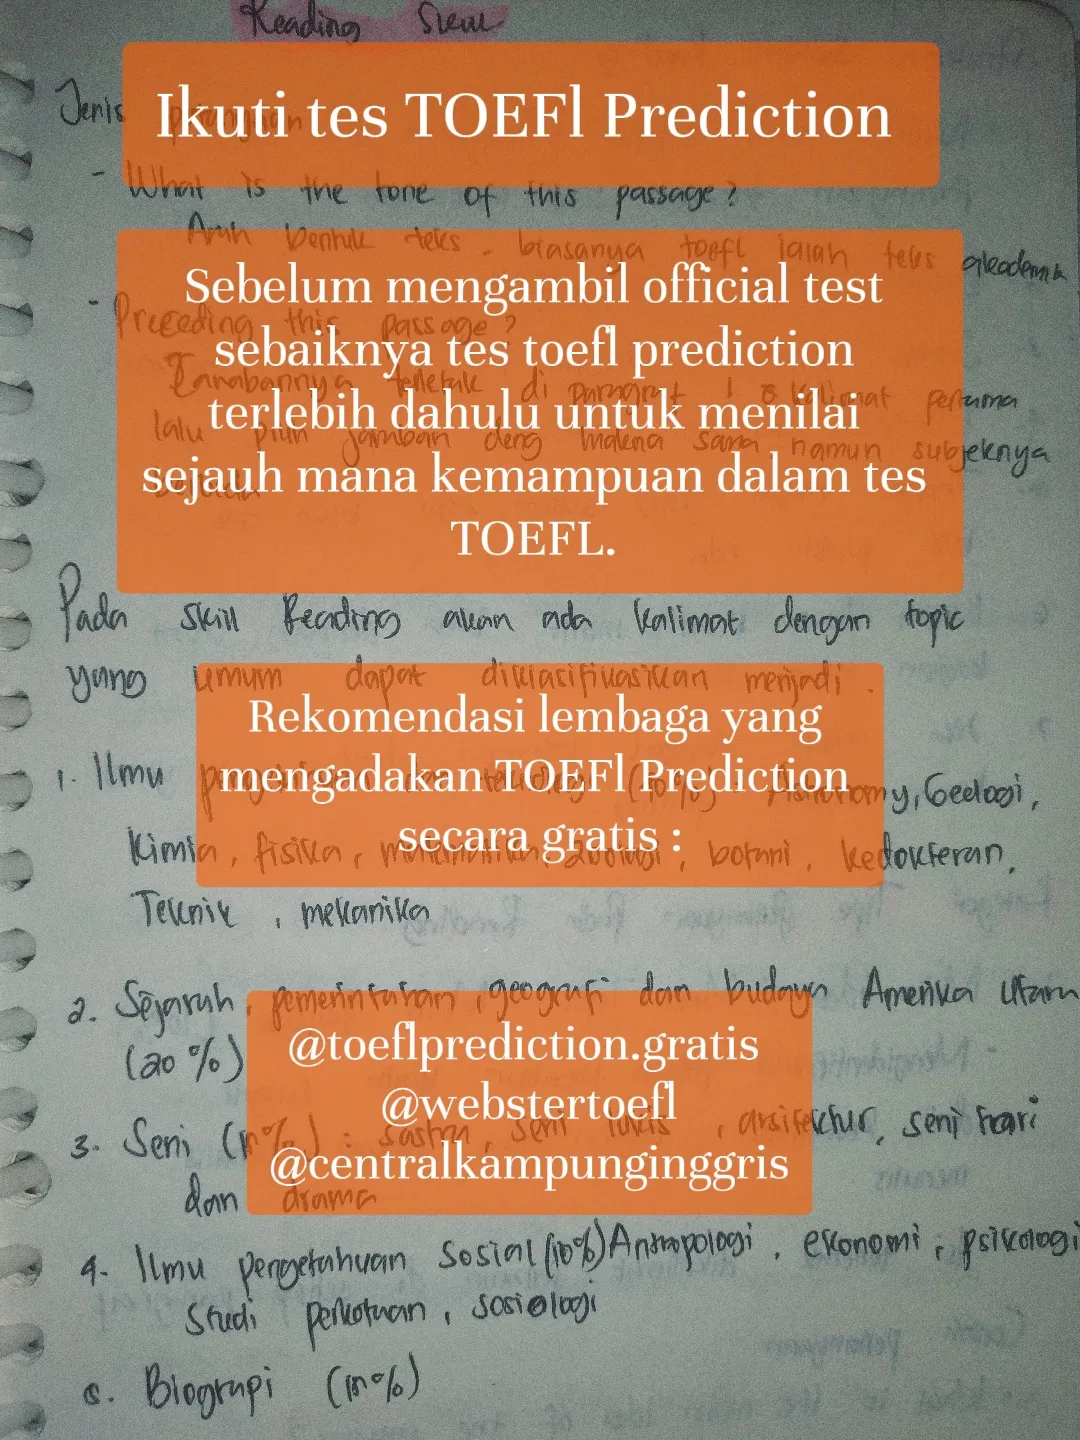 Reading Skill
Jenis
Ikuti tes TOEFl Prediction
- What is the tone of this passage?
bentuk teks . biasanya toefl ialah teks akademik
- Preceding this passage?
Sebelum mengambil official test
sebaiknya tes toefl prediction
terlebih dahulu untuk menilai
sejauh mana kemampuan dalam tes
TOEFL.
terletak di paragraf 1 kalimat pertama
lalu pilih jawaban deng makna sama namun subjeknya
Pada skill Reading akan ada kalimat dengan topic
yang umum dapat diklasifikasikan menjadi .
Rekomendasi lembaga yang
mengadakan TOEFl Prediction
secara gratis :
1. Ilmu Astronomy, Geologi,
kimia, fisika, botani, kedokteran,
Teknik , mekanika
2. Sejarah, pemerintahan, geografi dan budaya Amerika Utara
(20%)
@toeflprediction.gratis
@webstertoefl
@centralkampunginggris
3. Seni : sastra, seni lukis , arsitektur, seni tari
dan drama
4. Ilmu pengetahuan Sosial (10%) Antropologi , ekonomi, psikologi
Studi perkotaan, sosiologi
Biograpi